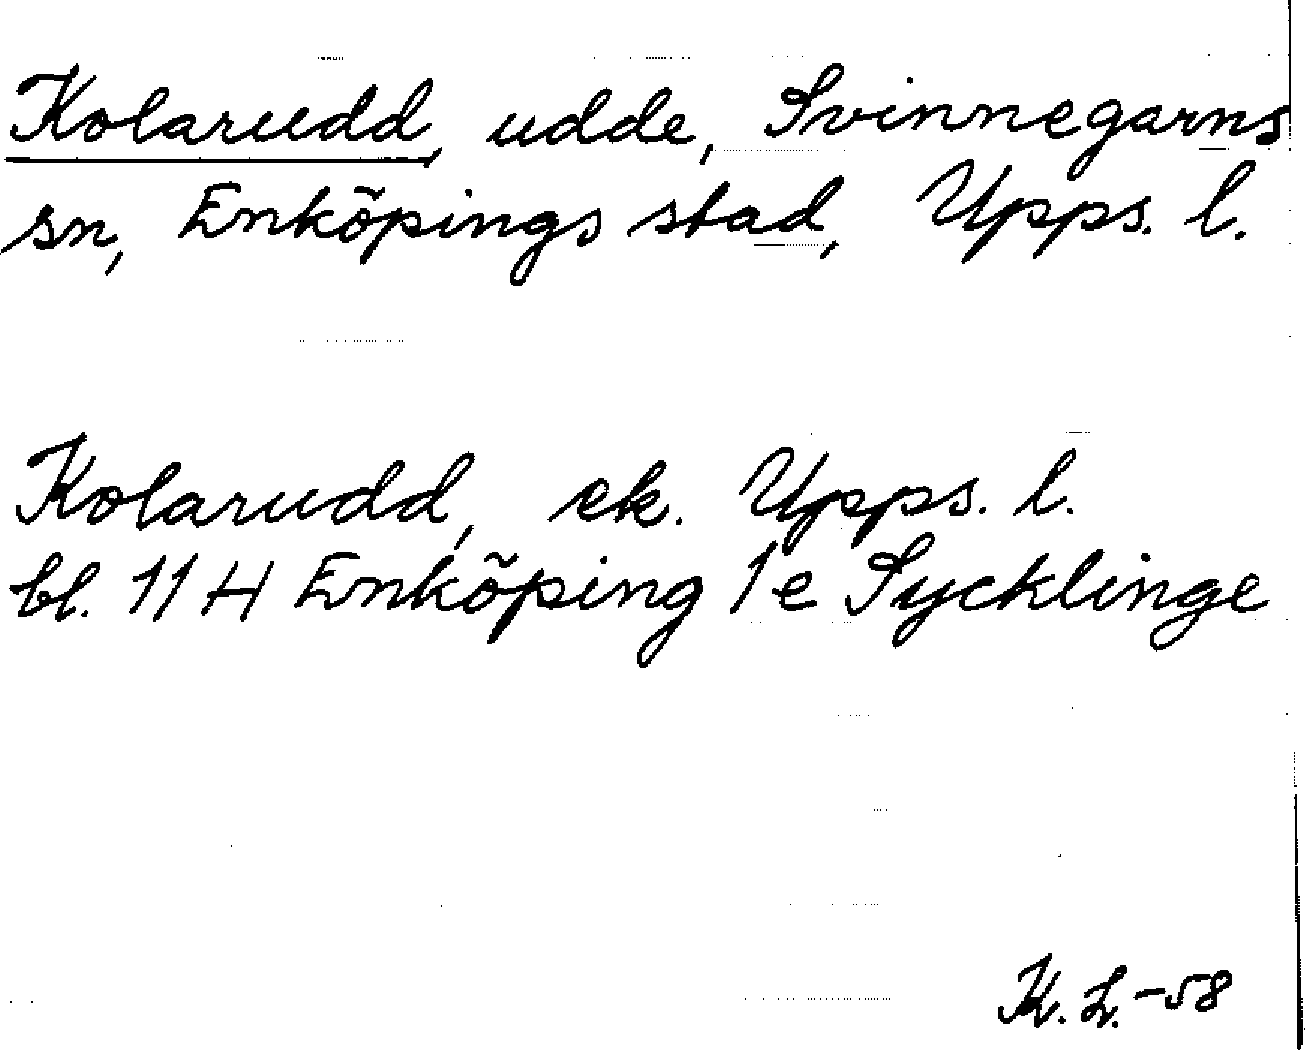 Kolarudd, udde, Svinnegarns
sn, Enköpings stad, Upps. l.
Kolarudd, ek. Upps. l.
bl. 11 H Enköping 1 e Sycklinge
K. L. -58